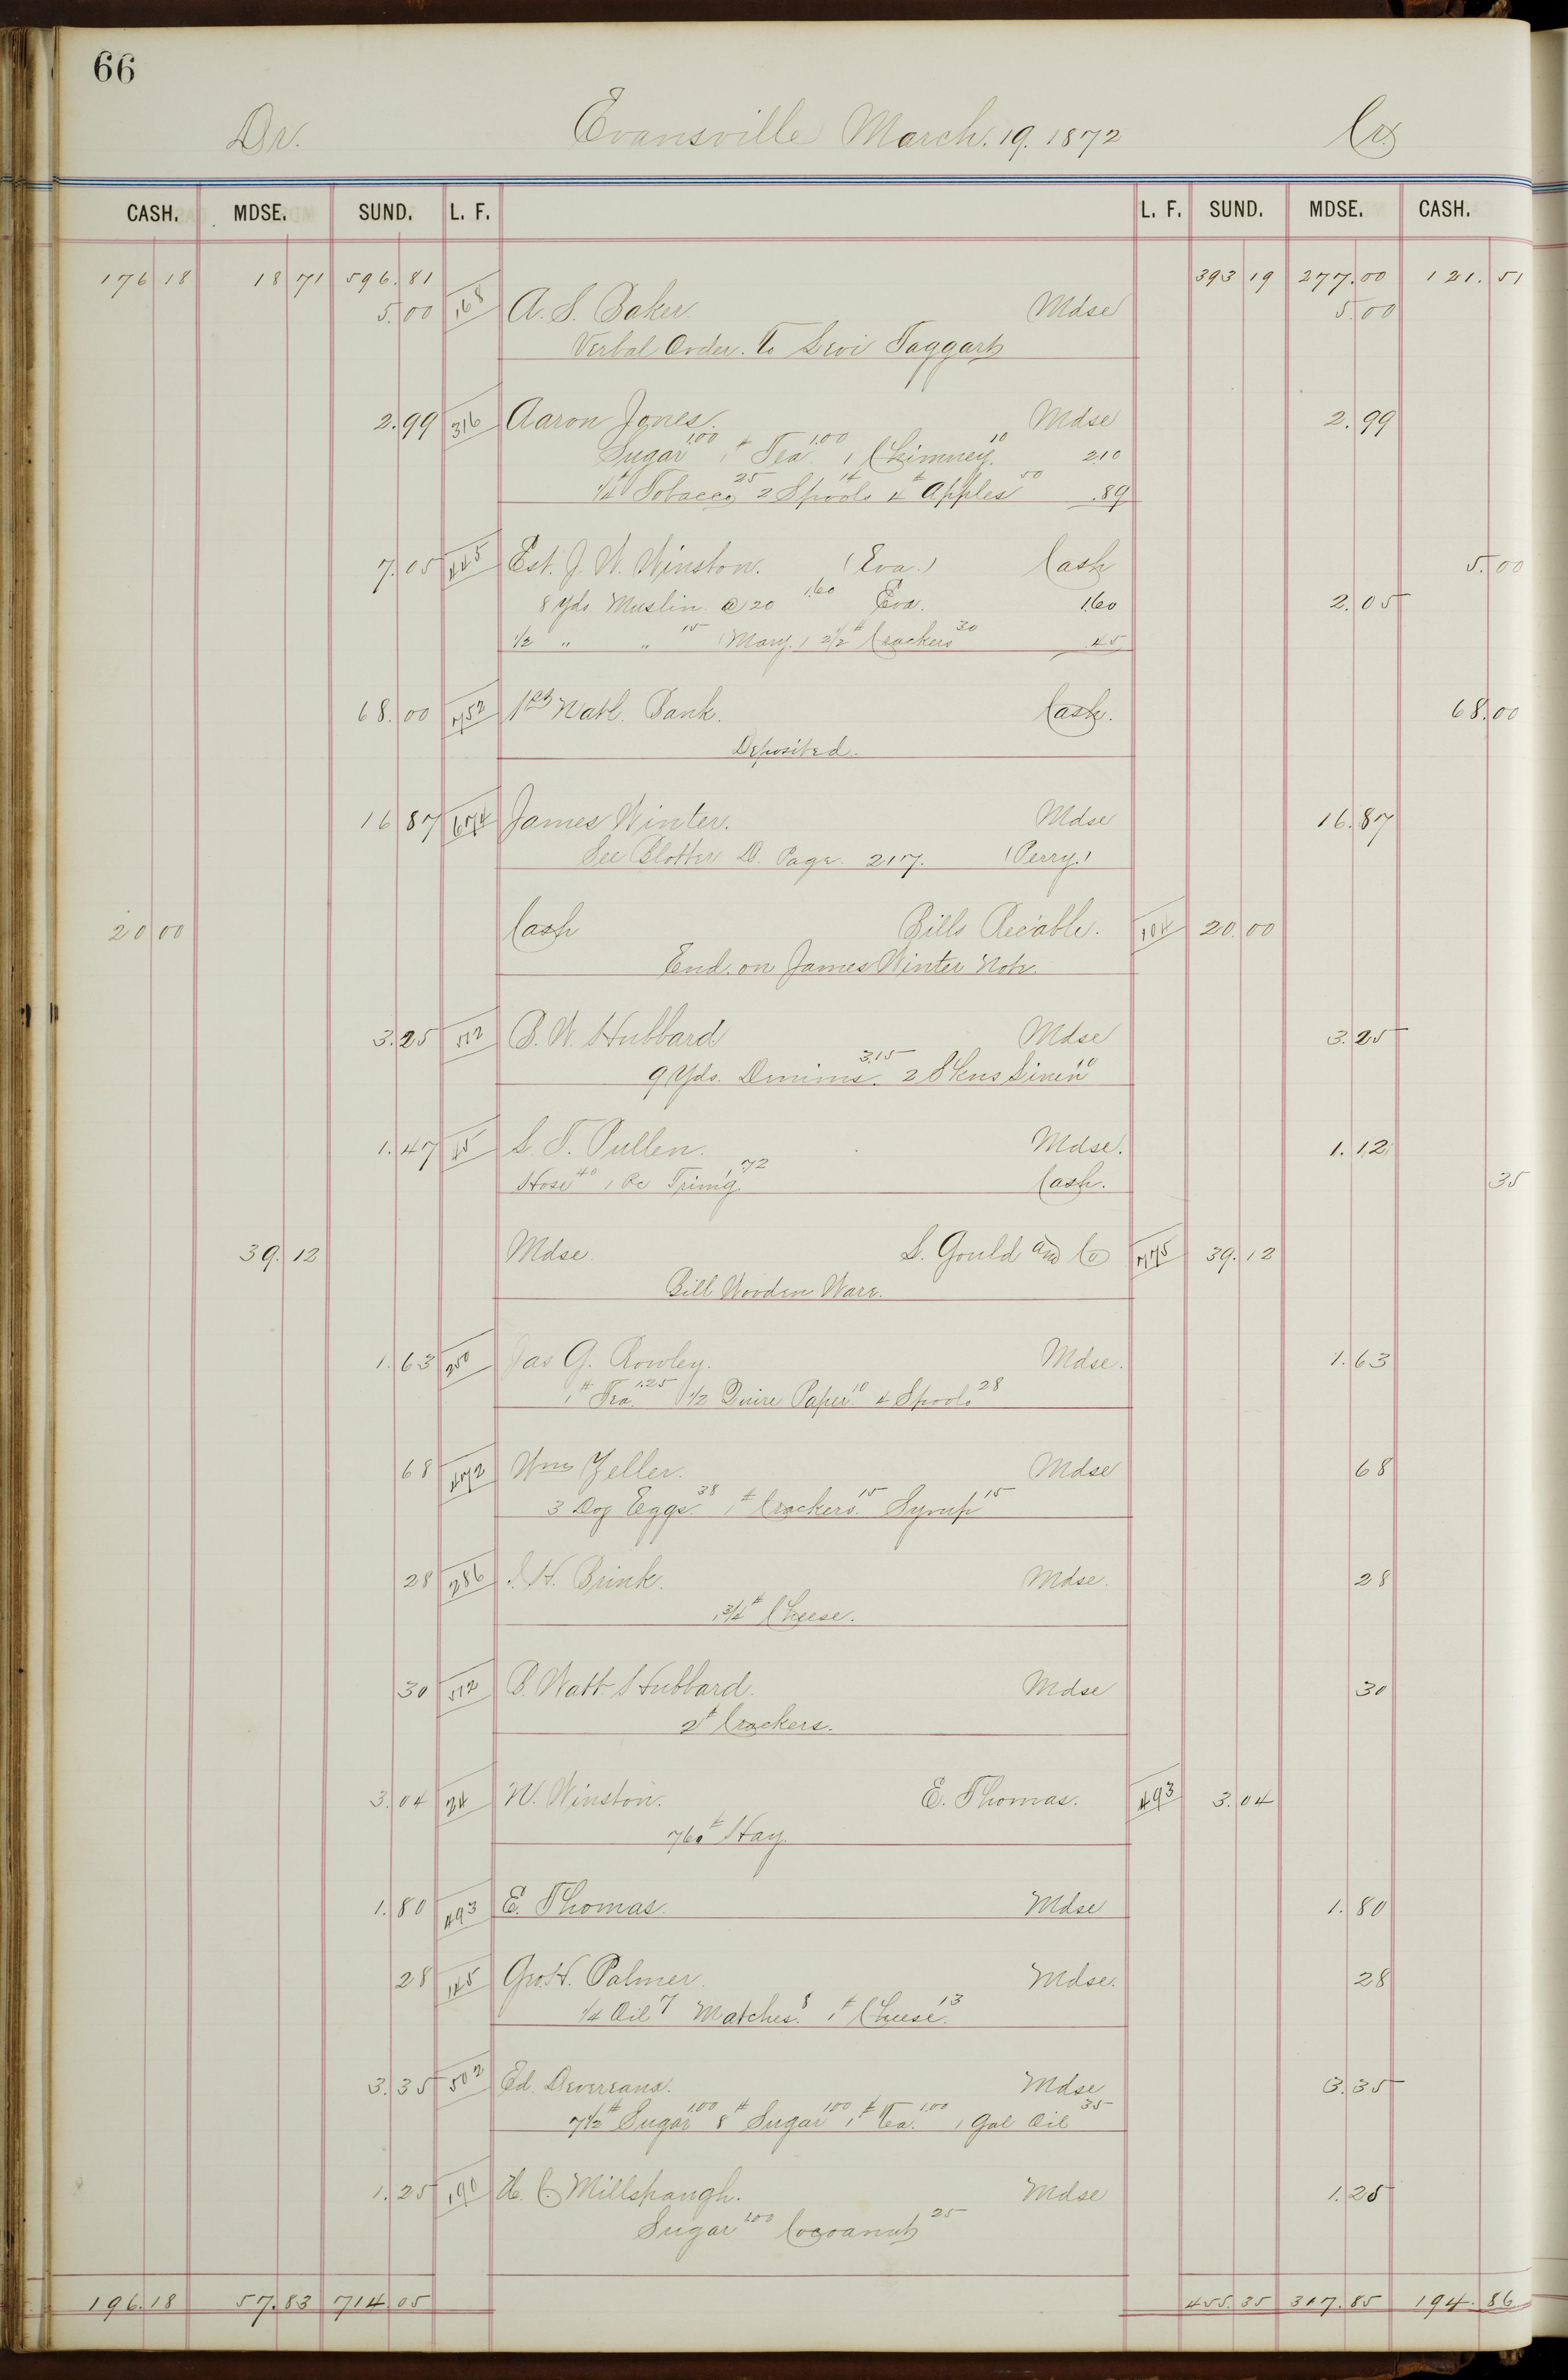 66
Dr. Evansville March. 19. 1872 Cr.
CASH. MDSE. SUND. L. F. L. F. SUND. MDSE. CASH.
176 18 18 71 596. 81 393 19 277. 00 121. 51
5. 00 168 A. S. Baker. Mdse 5. 00
Verbal Order. To Levi Taggart
2. 99 316 Aaron Jones. Mdse 2. 99
Sugar 1.00 1# Tea 1.00 1 Chimney. 10 2.10
1/4# Tobacco 25 2 Spools 14 4# Apples 50 .89
7. 05 445 Est. J. W. Winston. (Eva.) Cash 5. 00
8 Yds Muslin. @ 20 1.60 Eva. 1.60 2. 05
1/2 " " 15 (Mary.) 2 1/2# Crackers 30 .45
68. 00 752 1st Natl. Bank. Cash. 68. 00
Deposited.
16 87 674 James Winter. Mdse 16. 87
See Blotter D. Page. 217. (Perry.)
20 00 Cash Bills Rec'able. 104 20. 00
End. on James Winter Note.
3. 25 512 B. W. Hubbard Mdse 3. 25
9 Yds. Denims. 3.15 2 Skns Linen 10
1. 47 45 L. T. Pullen. Mdse. 1. 12
Hose 40 1 Pc Trim'g. .72 Cash. 35
39. 12 Mdse. L. Gould and Co 775 39. 12
Bill Wooden Ware.
1. 63 250 Jas G. Rowley. Mdse. 1. 63
1# Tea. 1.25 1/2 Quire Paper 10 4 Spools 28
68 472 Wm Zeller. Mdse 68
3 Doz Eggs. 38 1# Crackers. 15 Syrup 15
28 286 H. Brink. Mdse. 28
1 3/4# Cheese.
30 512 B. Watt. Hubbard. Mdse 30
2# Crackers.
3. 04 24 N. Winston. E. Thomas. 493 3. 04
760# Hay.
1. 80 493 E. Thomas. Mdse 1. 80
28 145 Geo. H. Palmer. Mdse. 28
1/4 Oil 7 Matches. 8 1# Cheese. 13
3. 35 502 Ed. Devereaux. Mdse 3. 35
7 1/2# Sugar 1.00 8# Sugar 1.00 1# Tea. 1.00 1 Gal Oil 35
1. 25 190 H. C. Millspaugh. Mdse 1. 25
Sugar 1.00 Cocoanut 25
196. 18 57. 83 714. 05 455. 35 317. 85 194. 86